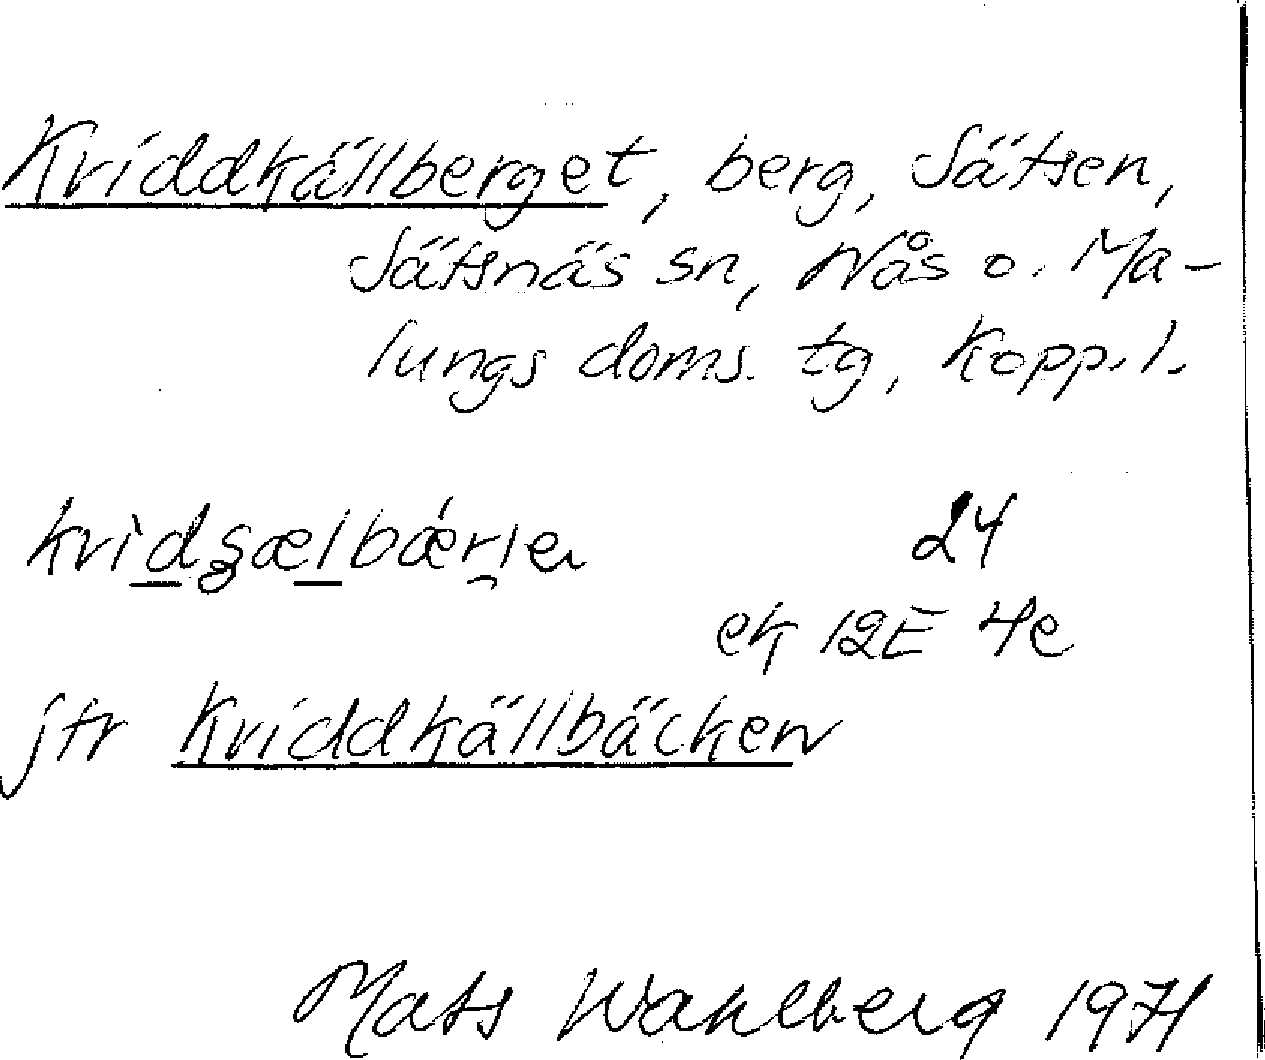 Kriddkällberget, berg, Sätsen,
Sätsnäs sn, Nås o. Ma-
lungs doms. tg, Kopp. l.
24
ek 12E 4e
jtr Kriddkällbäcken
Mats Wahlberg 1971